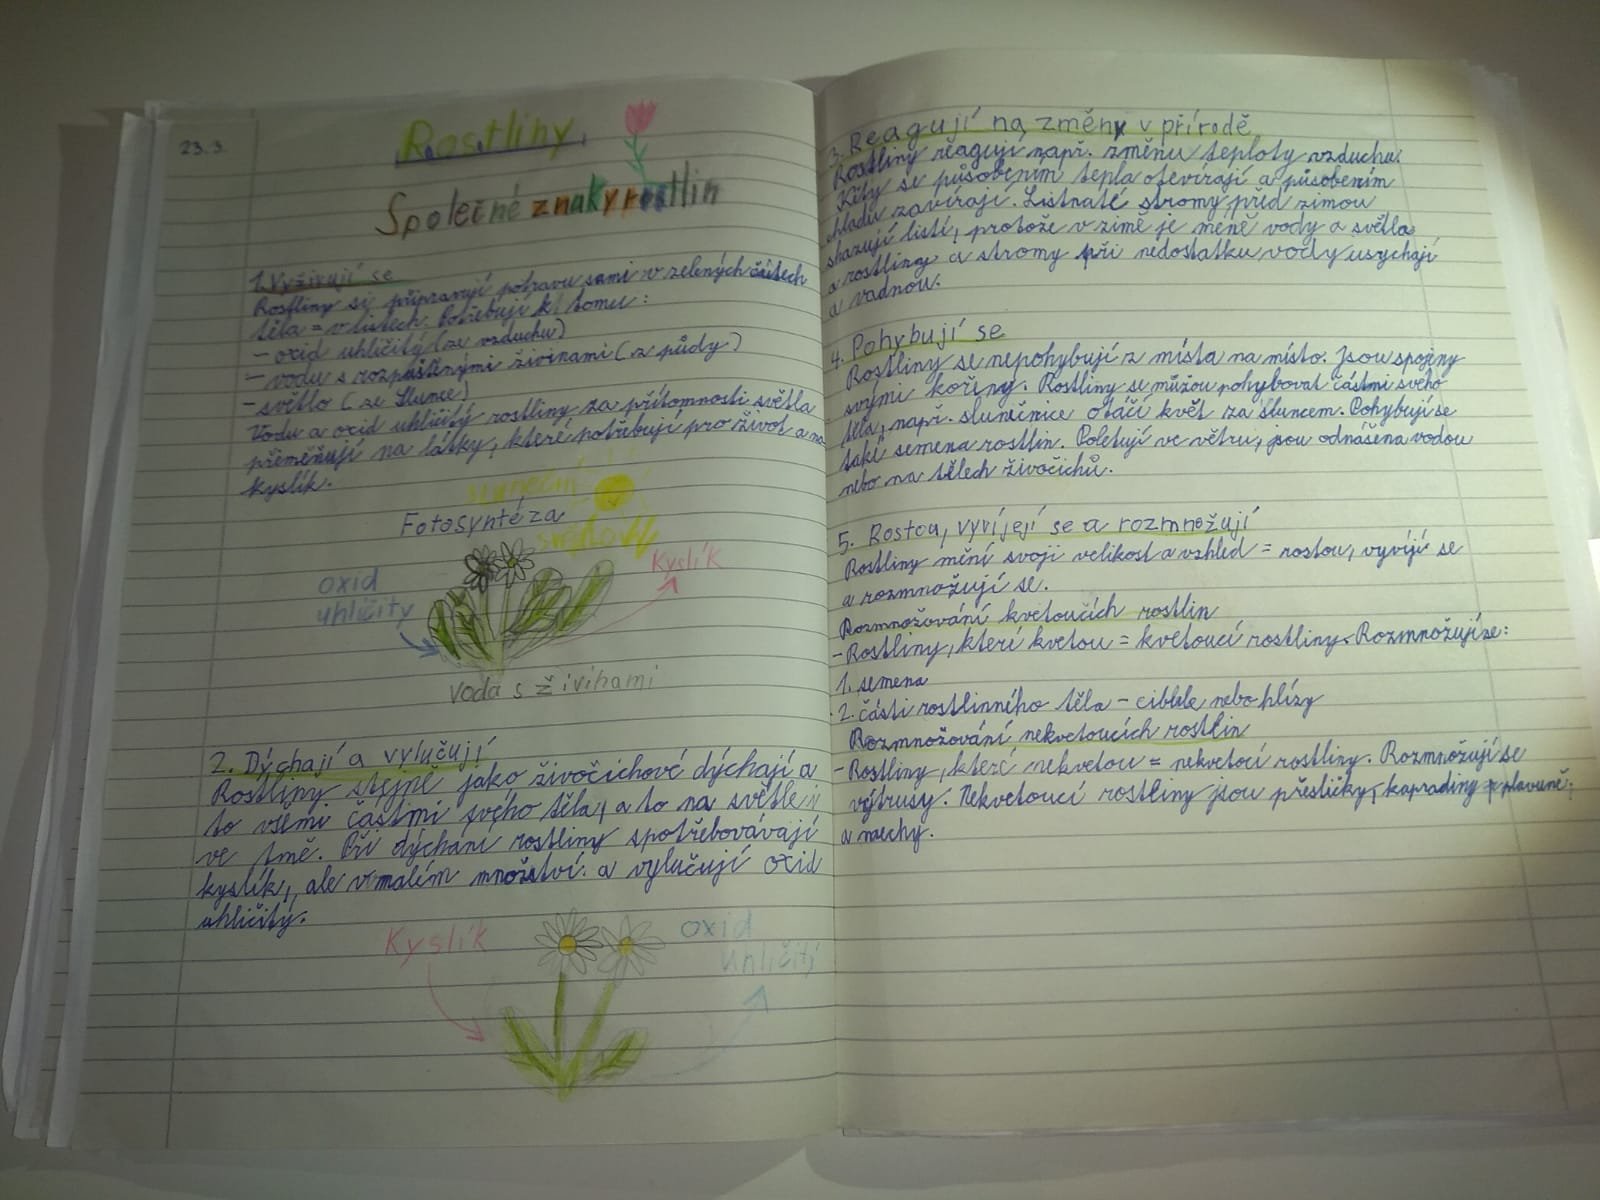 23.3.
Rostliny
Společné znaky rostlin
1. Vyživují se
Rostliny si připravují potravu sami v zelených částech
těla = v listech. Potřebují k tomu:
- oxid uhličitý (ze vzduchu)
- vodu s rozpuštěnými živinami (z půdy)
- světlo (ze Slunce)
Vodu a oxid uhličitý rostliny za přítomnosti světla
přeměňují na látky, které potřebují pro život a na
kyslík.
sluneční
Fotosyntéza
světlo
Kyslík
oxid
uhličitý
voda s živinami
2. Dýchají a vylučují
Rostliny stejně jako živočichové dýchají a
to všemi částmi svého těla, a to na světle i
ve tmě. Při dýchání rostliny spotřebovávají
kyslík, ale v malém množství. a vylučují oxid
uhličitý.
Kyslík
oxid
uhličití
3. Reagují na změny v přírodě
Rostliny réagují např. změnu teploty vzduchu.
Kity se působením tepla otevírají a působením
chladu zavírají. Listnaté stromy před zimou
shazují listí, protože v zimě je méně vody a světla
a rostliny a stromy při nedostatku vody usychají
a vadnou.
4. Pohybují se
Rostliny se nepohybují z místa na místo. Jsou spojeny
svými kořeny. Rostliny se můžou pohybovat částmi svého
těla, např. slunečnice otáčí květ za sluncem. Pohybují se
také semena rostlin. Poletují ve větru, jsou odnášena vodou
nebo na tělech živočichů.
5. Rostou, vyvíjejí se a rozmnožují
Rostliny mění svoji velikost a vzhled = rostou, vyvíjí se
a rozmnožují se.
Rozmnožování kvetoučích rostlin
- Rostliny, které kvetou = kvetoucí rostliny. Rozmnožují se:
1. semena
2. části rostlinného těla - cibule nebo hlízy
Rozmnožování nekvetoucích rostlin
- Rostliny, které nekvetou = nekvetocí rostliny. Rozmnožují se
výtrusy. Nekvetoucí rostliny jsou přesličky, kapradiny plavuně,
a mechy.